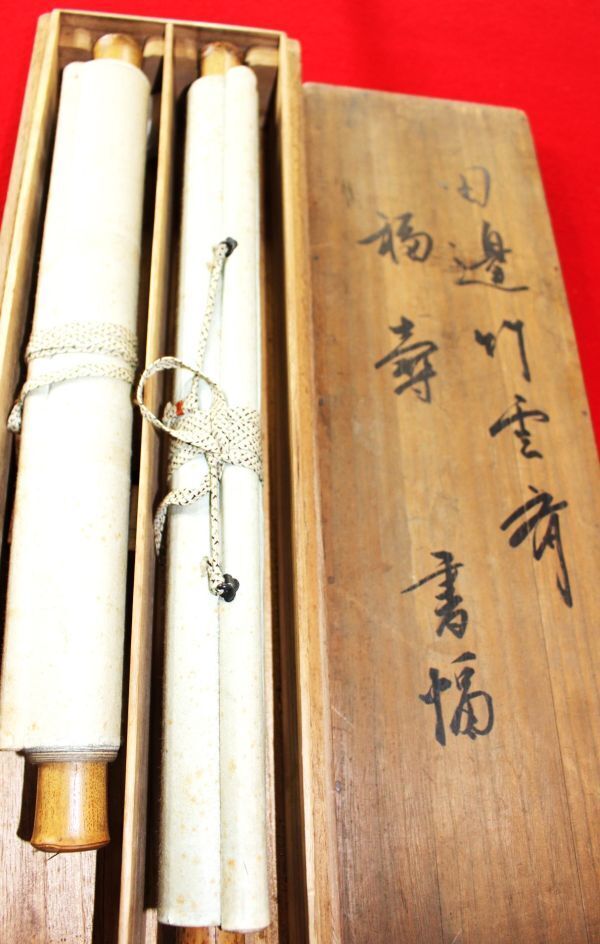 田邊竹雲斎
福壽 書幅